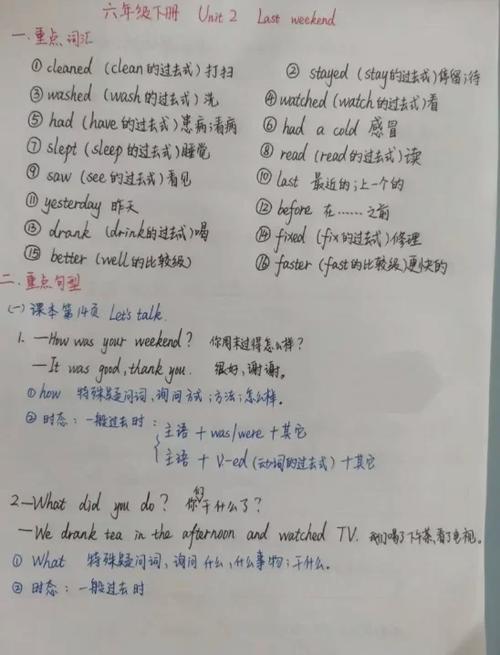 六年级下册 Unit 2 Last weekend
一.重点词汇
①cleaned (clean的过去式)打扫 ② stayed (stay的过去式)停留;待
③washed (wash的过去式)洗 ④watched(watch的过去式)看
⑤had (have的过去式)患病;看病 ⑥ had a cold 感冒
⑦slept (sleep的过去式)睡觉 ⑧read(read的过去式)读
⑨saw (see的过去式)看见 ⑩last 最近的;上一个的
⑪yesterday 昨天 ⑫before 在……之前
⑬drank (drink的过去式)喝 ⑭fixed (fix的过去式)修理
⑮ better (well的比较级) ⑯faster (fast的比较级)更快的
二.重点句型
(一)课本第14页 Let's talk.
1. —How was your weekend? 你周末过得怎么样?
—It was good,thank you. 很好,谢谢。
①how 特殊疑问词,询问方式;方法;怎么样。
②时态:一般过去时: 主语+was/were+其它
主语+V-ed(动词的过去式)+其它
2.—What did you do? 你们干什么了?
—We drank tea in the afternoon and watched TV. 我们喝了下午茶,看了电视。
① What 特殊疑问词,询问什么,什么事物;干什么。
②时态:一般过去时